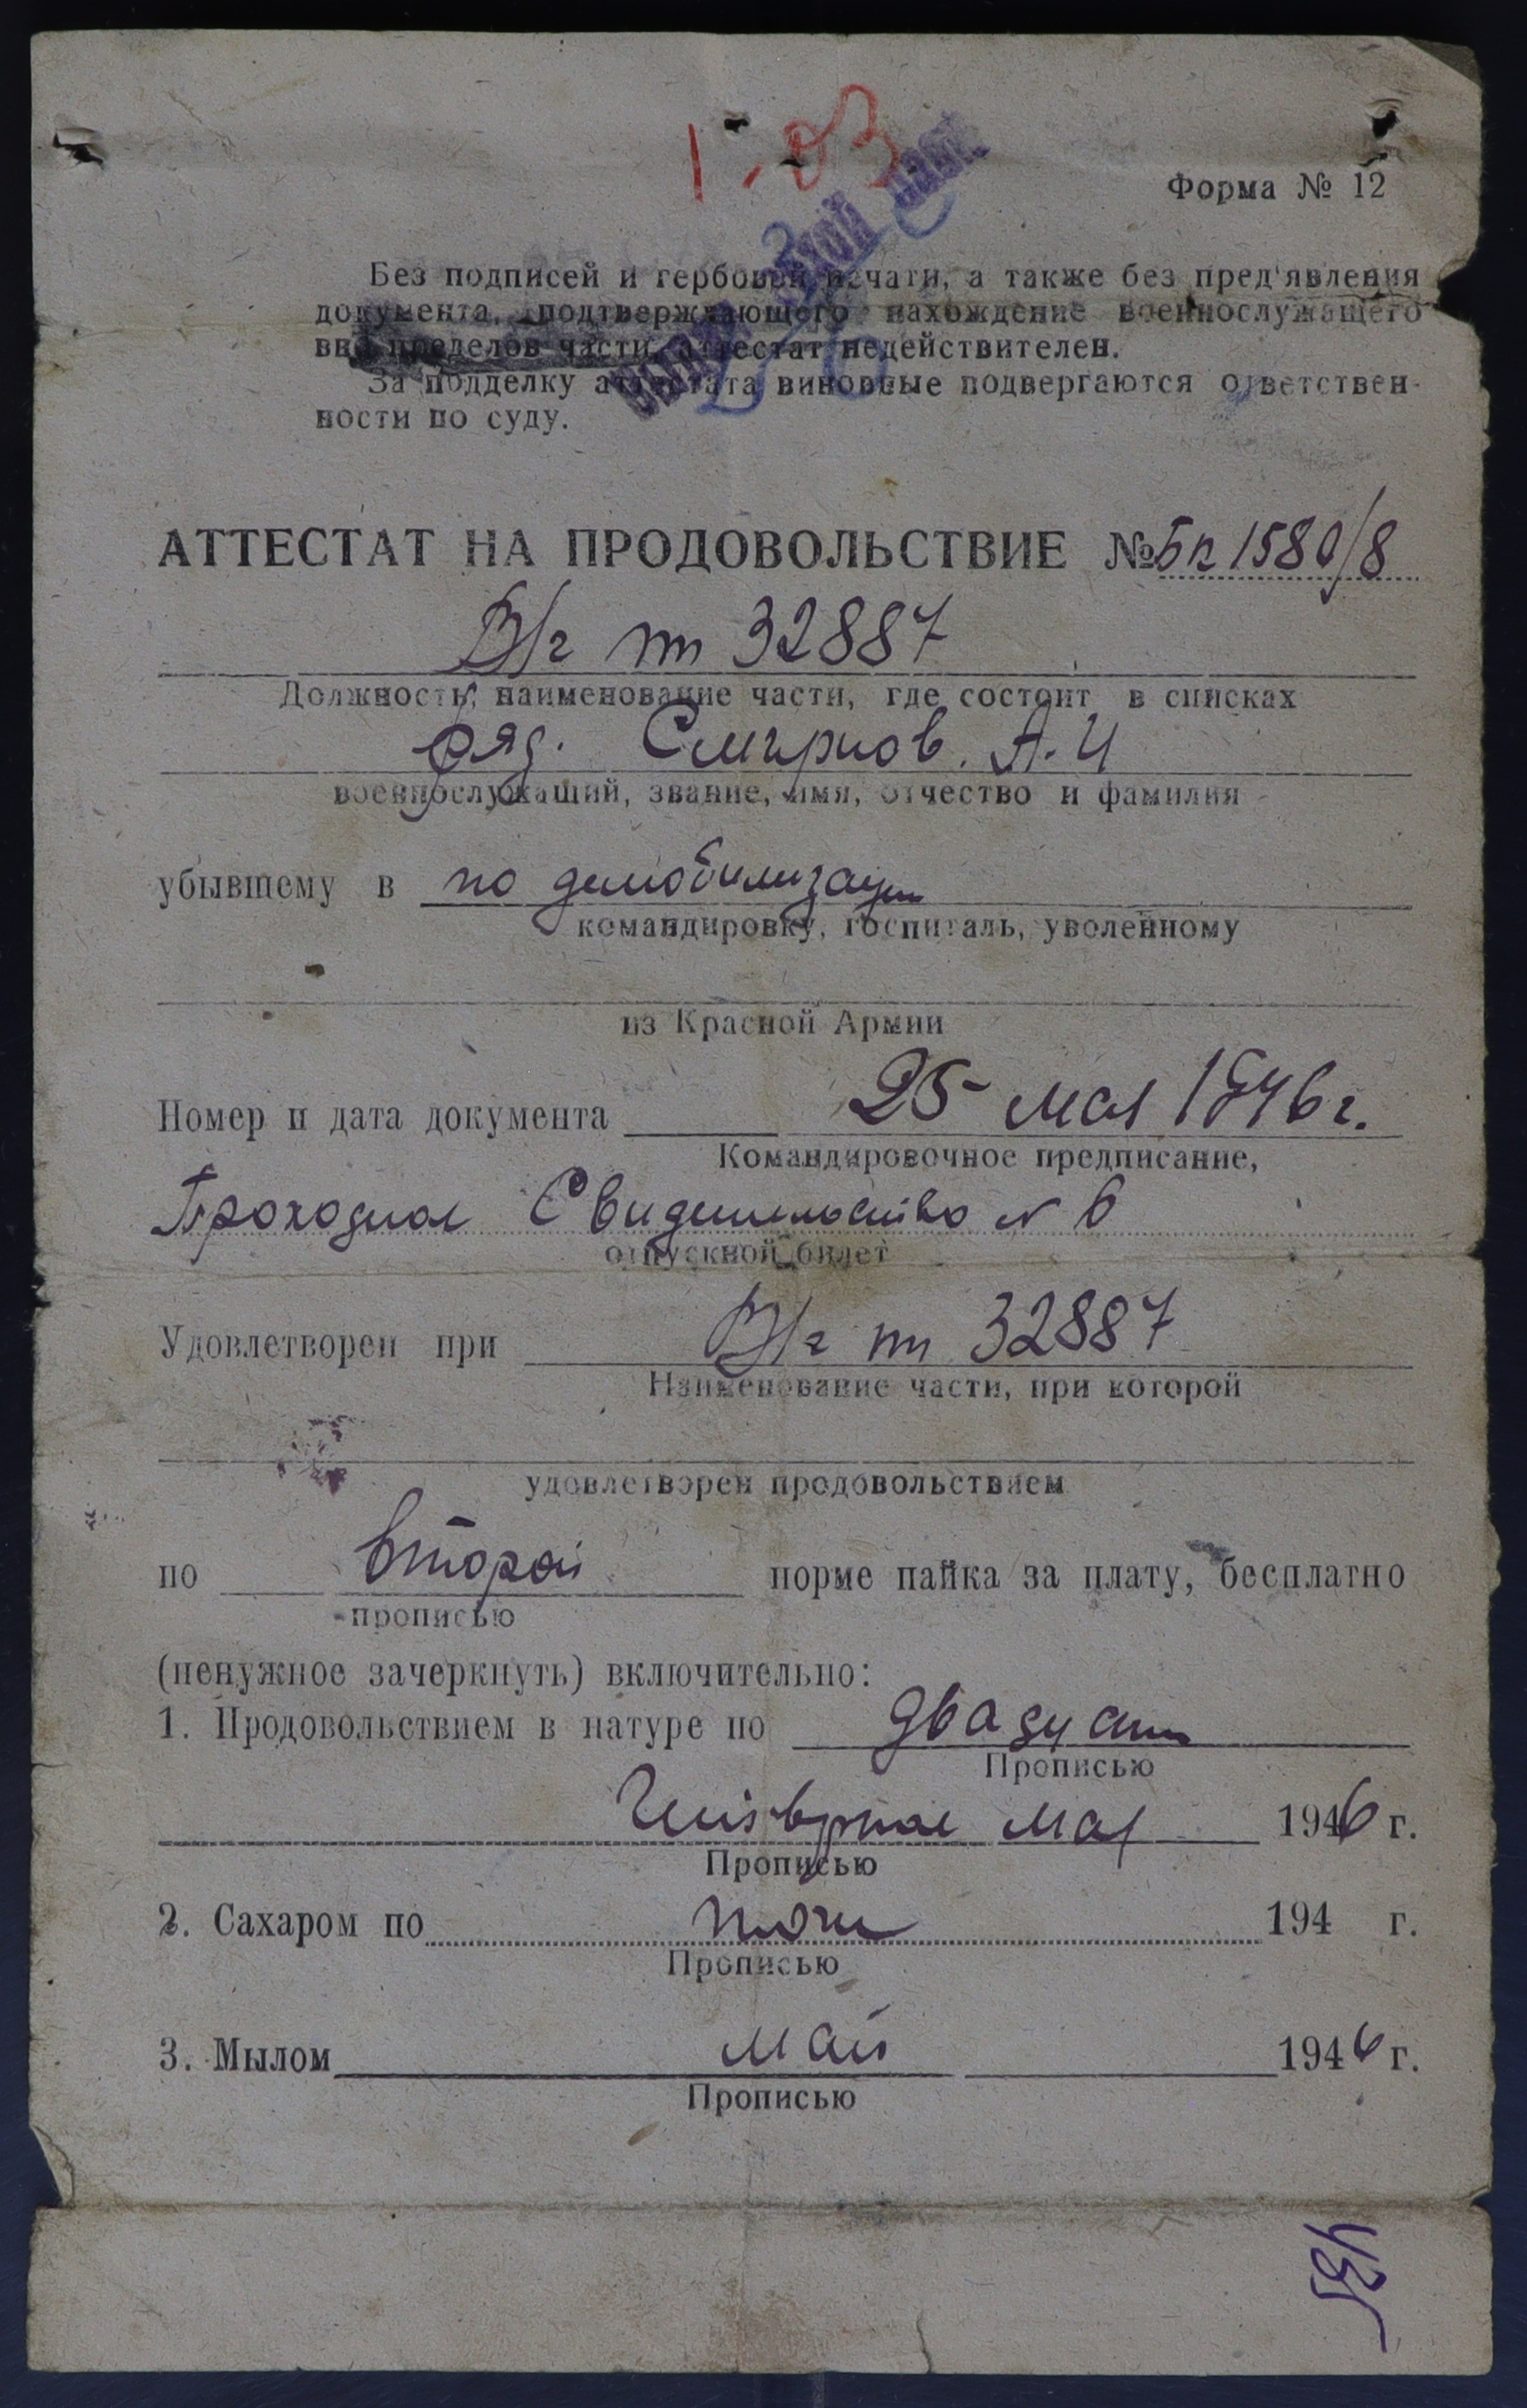 1-03
Форма № 12
Без подписей и гербовой печати, а также без пред'явления
документа, подтверждающего нахождение военнослужащего
вне пределов части, аттестат недействителен.
За подделку аттестата виновные подвергаются ответствен-
ности по суду.
АТТЕСТАТ НА ПРОДОВОЛЬСТВИЕ № Бп 1580/8
В/ч пп 32887
Должность, наименование части, где состоит в списках
ряд. Смирнов. А. И
военнослужащий, звание, имя, отчество и фамилия
убывшему в по демобилизации
командировку, госпиталь, уволенному
из Красной Армии
Номер и дата документа 25 мая 1946 г.
Командировочное предписание,
Проходное Свидетельство № 6
отпускной билет
Удовлетворен при В/ч пп 32887
Наименование части, при которой
удовлетворен продовольствием
по второй норме пайка за плату, бесплатно
прописью
(ненужное зачеркнуть) включительно:
1. Продовольствием в натуре по двадцать
Прописью
Четвертое мая 1946 г.
Прописью
2. Сахаром по 194 г.
Прописью
3. Мылом май 1946 г.
Прописью